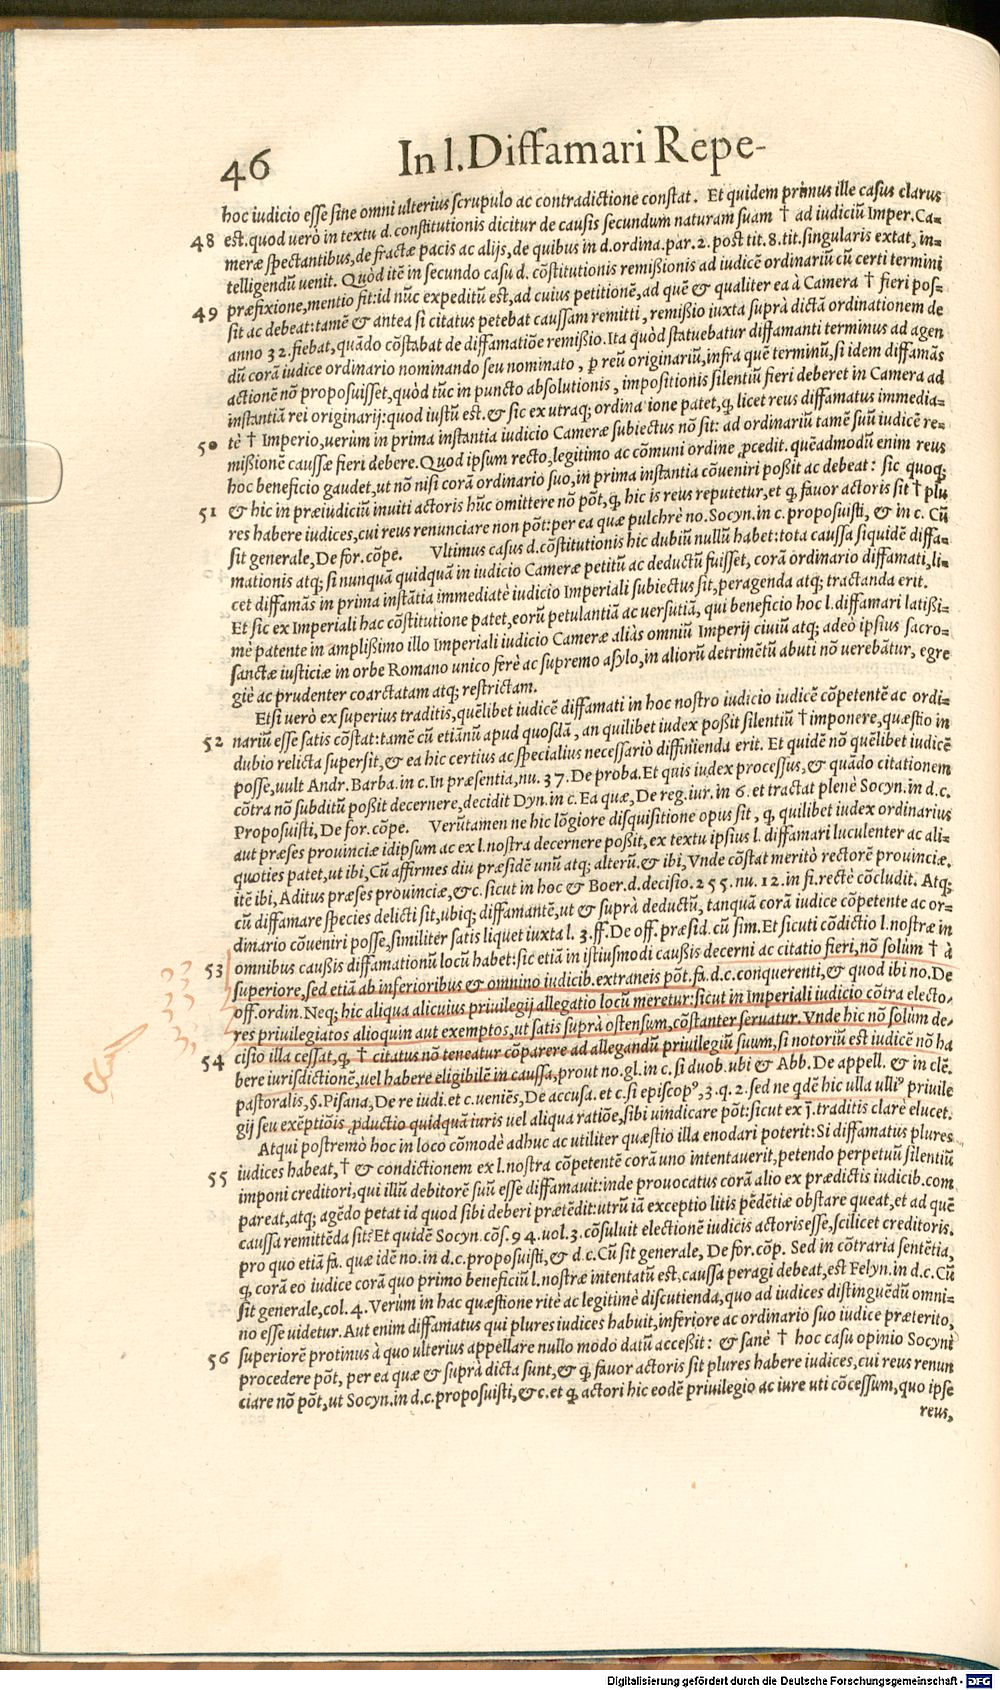 46
In l. Diffamari Repe-
hoc iudicio esse sine omni ulterius scrupulo ac contradictione constat. Et quidem primus ille casus clarus
48 est. quod verò in textu d. constitutionis dicitur de causis secundum naturam suam † ad iudiciũ Imper. Ca=
meræ spectantibus, de fractæ pacis ac alijs, de quibus in d. ordina. par. 2. post tit. 8. tit. singularis extat, in=
telligendũ uenit. Quòd itẽ in secundo casu d. cõstitutionis remißionis ad iudicẽ ordinariũ cũ certi termini
49 præfixione, mentio fit: id nũc expeditũ est, ad cuius petitionẽ, ad quẽ & qualiter ea à Camera † fieri pos=
sit ac debeat: tamẽ & antea si citatus petebat caussam remitti, remißio iuxta suprà dictã ordinationem de
anno 32. fiebat, quãdo cõstabat de diffamatiõe remißio. Ita quòd statuebatur diffamanti terminus ad agen
dũ corã iudice ordinario nominando seu nominato, ꝑ reũ originariũ, infra quẽ terminũ, si idem diffamãs
actionẽ nõ proposuisset, quòd tũc in puncto absolutionis, impositionis silentiũ fieri deberet in Camera ad
instantiã rei originarij: quod iustũ est. & sic ex utraq; ordina ione patet, ꝙ licet reus diffamatus immedia=
50 tè † Imperio, uerùm in prima instantia iudicio Cameræ subiectus nõ sit: ad ordinariũ tamẽ suũ iudicẽ re=
mißionẽ caussæ fieri debere. Quod ipsum recto, legitimo ac cõmuni ordine ꝓcedit. quẽadmodũ enim reus
hoc beneficio gaudet, ut nõ nisi corã ordinario suo, in prima instantia cõueniri poßit ac debeat: sic quoq;
51 & hic in præiudiciũ inuiti actoris hũc omittere nõ põt, ꝙ hic is reus reputetur, et ꝙ fauor actoris sit † plu
res habere iudices, cui reus renunciare non põt: per ea quæ pulchrè no. Socyn. in c. proposuisti, & in c. Cũ
sit generale, De for. cõpe. Vltimus casus d. cõstitutionis hic dubiũ nullũ habet: tota caussa siquidẽ diffa=
mationis atq; si nunquã quidquã in iudicio Cameræ petitũ ac deductũ fuisset, corã ordinario diffamati, li=
cet diffamãs in prima instãtia immediatè iudicio Imperiali subiectus sit, peragenda atq; tractanda erit.
Et sic ex Imperiali hac cõstitutione patet, eorũ petulantiã ac uersutiã, qui beneficio hoc l. diffamari latißi=
mè patente in amplißimo illo Imperiali iudicio Cameræ aliàs omniũ Imperij ciuiũ atq; adeò ipsius sacro=
sanctæ iusticiæ in orbe Romano unico ferè ac supremo asylo, in aliorũ detrimẽtũ abuti nõ uerebãtur, egre
giè ac prudenter coarctatam atq; restrictam.
Etsi uerò ex superius traditis, quẽlibet iudicẽ diffamati in hoc nostro iudicio iudicẽ cõpetentẽ ac ordi=
52 nariũ esse satis cõstat: tamẽ cũ etiãnũ apud quosdã, an quilibet iudex poßit silentiũ † imponere, quæstio in
dubio relicta supersit, & ea hic certius ac specialius necessariò diffinienda erit. Et quidẽ nõ quẽlibet iudicẽ
posse, uult Andr. Barba. in c. In præsentia, nu. 37. De proba. Et quis iudex processus, & quãdo citationem
cõtra nõ subditũ poßit decernere, decidit Dyn. in c. Ea quæ, De reg. iur. in 6. et tractat plenè Socyn. in d. c.
Proposuisti, De for. cõpe. Verũtamen ne hic lõgiore disquisitione opus sit, ꝙ quilibet iudex ordinarius
aut præses prouinciæ idipsum ac ex l. nostra decernere poßit, ex textu ipsius l. diffamari luculenter ac ali=
quoties patet, ut ibi, Cũ affirmes diu præsidẽ unũ atq; alterũ. & ibi, Vnde cõstat meritò rectorẽ prouinciæ.
itẽ ibi, Aditus præses prouinciæ, &c. sicut in hoc & Boer. d. decisio. 255. nu. 12. in fi. rectè cõcludit. Atq;
cũ diffamare species delicti sit, ubiq; diffamantẽ, ut & suprà deductũ, tanquã corã iudice cõpetente ac or=
dinario cõueniri posse, similiter satis liquet iuxta l. 3. ff. De off. præsid. cũ sim. Et sicuti cõdictio l. nostræ in
53 omnibus caußis diffamationũ locũ habet: sic etiã in istiusmodi caußis decerni ac citatio fieri, nõ solùm † à
superiore, sed etiã ab inferioribus & omnino iudicib. extraneis põt. fa. d. c. conquerenti, & quod ibi no. De
off. ordin. Neq; hic aliqua alicuius priuilegij allegatio locũ meretur: sicut in Imperiali iudicio cõtra electo=
res priuilegiatos alioquin aut exemptos, ut satis suprà ostensum, cõstanter seruatur. Vnde hic nõ solùm de=
54 cisio illa cessat, ꝙ † citatus nõ teneatur cõparere ad allegandũ priuilegiũ suum, si notoriũ est iudicẽ nõ ha
bere iurisdictionẽ, uel habere eligibilẽ in caussa, prout no. gl. in c. si duob. ubi & Abb. De appell. & in clẽ.
pastoralis, §. Pisana, De re iudi. et c. ueniẽs, De accusa. et c. si episcopꝰ, 3. q. 2. sed ne qdẽ hic ulla ulliꝰ priuile
gij seu exẽptiõis ꝓductio quidquã iuris uel aliqua ratiõe, sibi uindicare põt: sicut ex j. traditis clarè elucet.
Atqui postremò hoc in loco cõmodè adhuc ac utiliter quæstio illa enodari poterit: Si diffamatus plures
55 iudices habeat, † & condictionem ex l. nostra cõpetentẽ corã uno intentauerit, petendo perpetuũ silentiũ
imponi creditori, qui illũ debitorẽ suũ esse diffamauit: inde prouocatus corã alio ex prædictis iudicib. com
pareat, atq; agẽdo petat id quod sibi deberi prætẽdit: utrũ iã exceptio litis pẽdẽtiæ obstare queat, et ad quẽ
caussa remittẽda sit? Et quidẽ Socyn. cõs. 94. uol. 3. cõsuluit electionẽ iudicis actoris esse, scilicet creditoris.
pro quo etiã fa. quæ idẽ no. in d. c. proposuisti, & d. c. Cũ sit generale, De for. cõp. Sed in cõtraria sentẽtia,
ꝙ corã eo iudice corã quo primo beneficiũ l. nostræ intentatũ est, caussa peragi debeat, est Felyn. in d. c. Cũ
sit generale, col. 4. Verùm in hac quæstione ritè ac legitimè discutienda, quo ad iudices distinguẽdũ omni=
no esse uidetur. Aut enim diffamatus qui plures iudices habuit, inferiore ac ordinario suo iudice præterito,
56 superiorẽ protinus à quo ulterius appellare nullo modo datũ acceßit: & sanè † hoc casu opinio Socyni
procedere põt, per ea quæ & suprà dicta sunt, & ꝙ fauor actoris sit plures habere iudices, cui reus renun
ciare nõ põt, ut Socyn. in d. c. proposuisti, &c. et ꝙ actori hic eodẽ priuilegio ac iure uti cõcessum, quo ipse
reus,
Digitalisierung gefördert durch die Deutsche Forschungsgemeinschaft - DFG